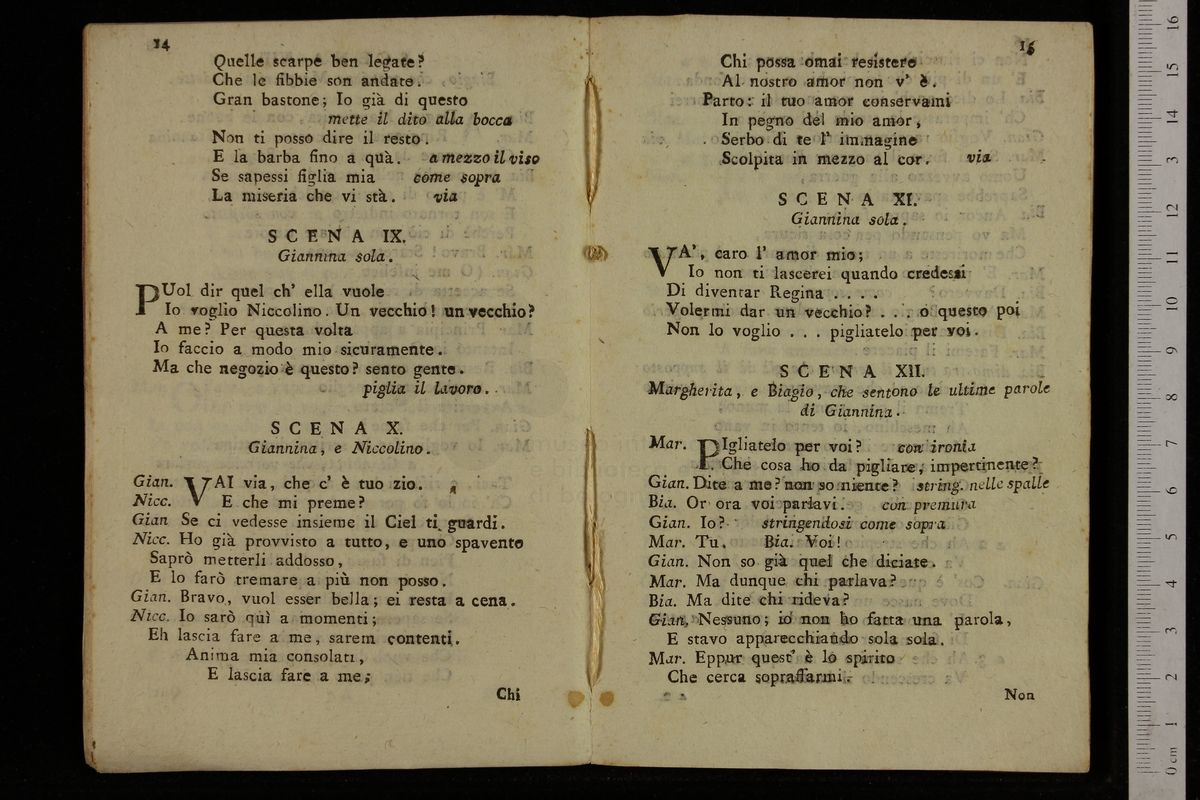 14
Quelle scarpe ben legate?
Che le fibbie son andate.
Gran bastone; Io già di questo
mette il dito alla bocca
Non ti posso dire il resto.
E la barba fino a quà. a mezzo il viso
Se sapessi figlia mia come sopra
La miseria che vi stà. via
SCENA IX.
Giannina sola.
PUol dir quel ch' ella vuole
Io voglio Niccolino. Un vecchio! un vecchio?
A me? Per questa volta
Io faccio a modo mio sicuramente.
Ma che negozio è questo? sento gente.
piglia il lavoro.
SCENA X.
Giannina, e Niccolino.
Gian. VAI via, che c' è tuo zio.
Nicc. E che mi preme?
Gian Se ci vedesse insieme il Ciel ti guardi.
Nicc. Ho già provvisto a tutto, e uno spavento
Saprò metterli addosso,
E lo farò tremare a più non posso.
Gian. Bravo, vuol esser bella; ei resta a cena.
Nicc. Io sarò quì a momenti;
Eh lascia fare a me, sarem contenti.
Anima mia consolati,
E lascia fare a me;
Chi
15
Chi possa omai resistere
Al nostro amor non v' è.
Parto: il tuo amor conservami
In pegno del mio amor,
Serbo di te l' immagine
Scolpita in mezzo al cor. via
SCENA XI.
Giannina sola.
VA', caro l' amor mio;
Io non ti lascerei quando credessi
Di diventar Regina . . . .
Volermi dar un vecchio? . . . o questo poi
Non lo voglio . . . pigliatelo per voi.
SCENA XII.
Margherita, e Biagio, che sentono le ultime parole
di Giannina.
Mar. PIgliatelo per voi? con ironia
Che cosa ho da pigliare, impertinente?
Gian. Dite a me? non so niente? string. nelle spalle
Bia. Or ora voi parlavi. con premura
Gian. Io? stringendosi come sopra
Mar. Tu. Bia. Voi!
Gian. Non so già quel che diciate.
Mar. Ma dunque chi parlava?
Bia. Ma dite chi rideva?
Gian. Nessuno; io non ho fatta una parola,
E stavo apparecchiando sola sola.
Mar. Eppur quest' è lo spirito
Che cerca sopraffarmi.
Non